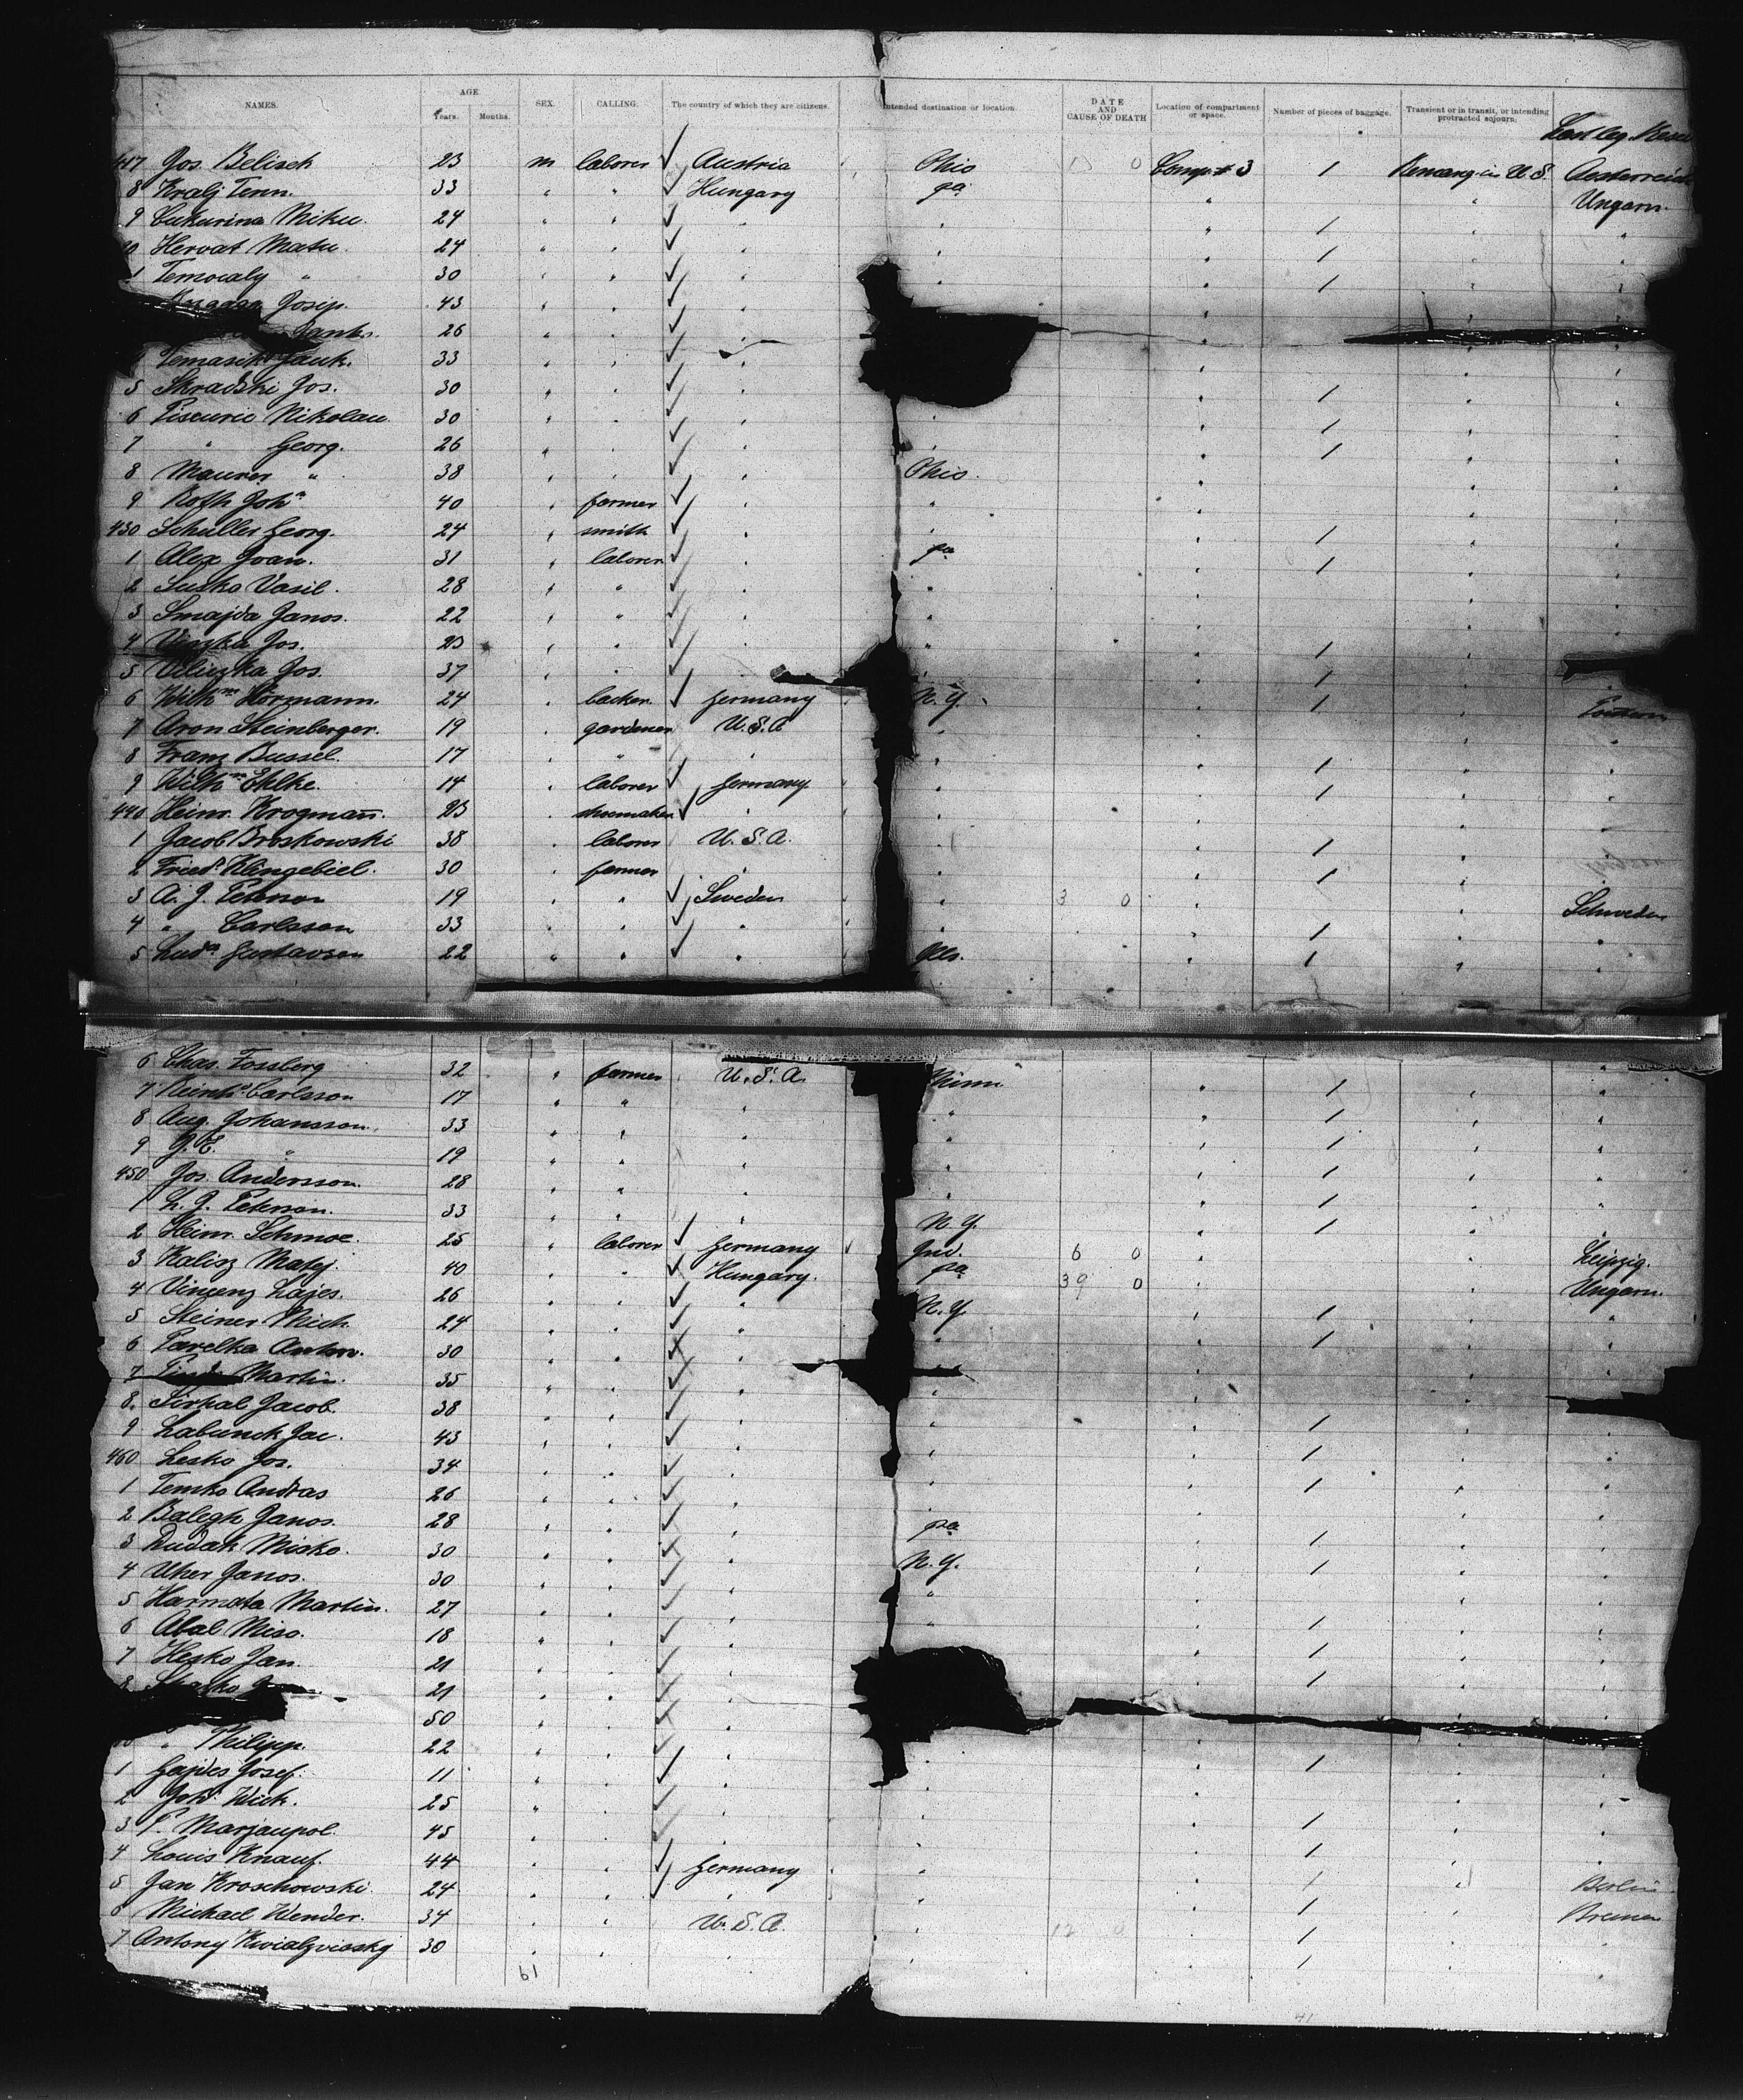 NAMES. AGE Years. Months. SEX. CALLING. The country of which they are citizens. Intended destination or location. DATE AND CAUSE OF DEATH Location of compartment or space. Number of pieces of baggage. Transient or in transit, or intending protracted sojourn.
417 Jos. Belisch 23 m laborer ✓ Austria Ohio 13 0 Comp. 3 1 U.S. Oesterreich
8 Kralj 33 " " ✓ Hungary pa " " Ungarn
9 Cukurina Miku 24 " " ✓ " " " 1 " "
Hervat Matu 24 " " ✓ " " " 1 " "
1 " 30 " " ✓ " " " 1 " "
Josip. 43 " " ✓ " " "
26 " " ✓ " " "
Tomasik Jank. 33 " " ✓ " " " "
5 Skradski Jos. 30 " " ✓ " " 1 " "
6 Piscuric Nikolau 30 " " ✓ " " " 1 " "
7 " Georg. 26 " " ✓ " " " 1 " "
8 Maurer " 38 " " ✓ " Ohio. " " "
9 Roth Joh n 40 " farmer ✓ " " " " "
430 Schuller Georg. 24 " smith ✓ " " " 1 " "
1 Alex Ivan. 31 " laborer ✓ " pa " 1 " "
2 Susko Vasil. 28 " " ✓ " " " " "
3 Smajda Janos. 22 " " ✓ " " " " "
4 Jos. 23 " " ✓ " " " 1 "
5 Viliczka Jos. 37 " " ✓ " " 1 "
6 Wilh m Hörmann. 24 " backer ✓ Germany N.Y. " 1 "
7 Aron Steinberger. 19 " gardener U.S.A " " " "
8 Franz Bussel. 17 " " " " " 1 " "
9 Wilh m Ehlke. 14 " laborer ✓ Germany " " 1 " "
440 Heinr. Krogmañ. 23 " shoemaker ✓ " " " " "
1 Jacob Broskowski 38 " laborer U.S.A. " " 1 " "
2 Fried. Klingebiel. 30 " farmer " " " 1 "
3 A. J. Peterson 19 " " ✓ Sweden " 3 0 " " Schweden
4 " Carlsson 33 " " ✓ " " " 1 " "
5 Gustavson 22 " " ✓ " Ills. " 1 " "
6 Chas. Fossberg 32 " farmer U.S.A. Minn. "
7 Reinh d Carlsson 17 " " " " 1 " "
8 Aug. Johansson. 33 " " " " " 1 " "
9 J. E. " 19 " " " " " 1 " "
450 Jos. Andersson. 28 " " " " " 1 " "
1 L. J. Peterson. 33 " " " N.Y. " 1 " "
2 Heinr. Schmoe. 25 " laborer ✓ Germany Ind. 6 0 " 1 " Leipzig.
3 Kalisz Matej. 40 " " ✓ Hungary. pa 39 0 " " Ungarn.
4 Vinzenz Lajos. 26 " " ✓ " N.Y. " " "
5 Steiner Mich. 24 " " ✓ " " " 1 " "
6 Pavelka Anton. 30 " " ✓ " " " 1 "
7 Martin. 35 " " ✓ " " " " "
8. Sirhal Jacob. 38 " " ✓ " " " "
9 Labunek Jac. 43 " " ✓ " " " 1 " "
460 Lesko Jos. 34 " " ✓ " " " 1 " "
1 Temko Andras 26 " " ✓ " " " 1 " "
2 Balegh Janos. 28 " " ✓ " pa " " "
3 Dudak Misko. 30 " " ✓ " N.Y. " 1 " "
4 Uher Janos. 30 " " ✓ " " " 1 " "
5 Harmata Martin. 27 " " ✓ " " " " "
6 Abal Miso. 18 " " ✓ " " 1 " "
7 Hesko Jan. 21 " " ✓ " " 1 " "
8 21 " " ✓ " " 1 " "
50 " " ✓ " " "
" Philipp. 22 " " ✓ " " " "
1 Gajdos Josef. 11 " " ✓ " " " 1 " "
2 Joh n Wick. 25 " " ✓ " " " " "
3 P. Marzaupol. 45 " " ✓ " " " 1 " "
4 Louis Knauf. 44 " " ✓ Germany " " 1 " "
5 Jan Kroschowski. 24 " " ✓ " " " 1 " Berlin
6 Michael Wender. 34 " " U.S.A. " 12 0 " 1 " Bremen
7 Antony 30 " " " " " 1 " "
61
41